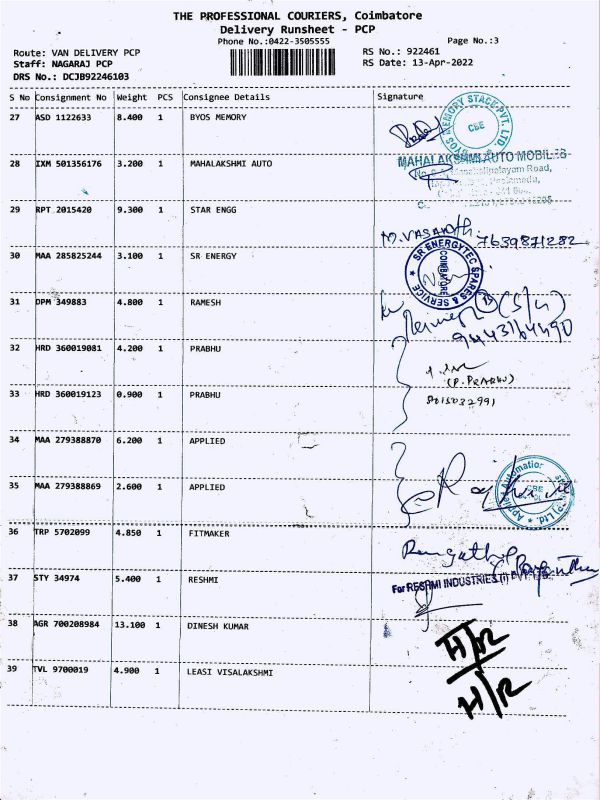 THE PROFESSIONAL COURIERS, Coimbatore
Delivery Runsheet - PCP
Phone No.:0422-3505555
Page No.:3
Route: VAN DELIVERY PCP
RS No.: 922461
Staff: NAGARAJ PCP
RS Date: 13-Apr-2022
DRS No.: DCJB92246103
S No Consignment No Weight PCS Consignee Details Signature
27 ASD 1122633 8.400 1 BYOS MEMORY
MEMORY STACK PVT. LTD.
CBE
28 IXM 501356176 3.200 1 MAHALAKSHMI AUTO
MAHALAKSHMI AUTO MOBILES
29 RPT 2015420 9.300 1 STAR ENGG
M. VASANTH
7639871282
30 MAA 285825244 3.100 1 SR ENERGY
SR ENERGYTEC SPARES & SERVICE
COIMBATORE
31 DPM 349883 4.800 1 RAMESH
9443164490
32 HRD 360019081 4.200 1 PRABHU
(P. PRABHU)
33 HRD 360019123 0.900 1 PRABHU
8015032991
34 MAA 279388870 6.200 1 APPLIED
35 MAA 279388869 2.600 1 APPLIED
Applied Automation
CBE
36 TRP 5702099 4.850 1 FITMAKER
37 STY 34974 5.400 1 RESHMI
For RESHMI INDUSTRIES (I) PVT. LTD.
38 AGR 700208984 13.100 1 DINESH KUMAR
H/R
39 TVL 9700019 4.900 1 LEASI VISALAKSHMI
H/R